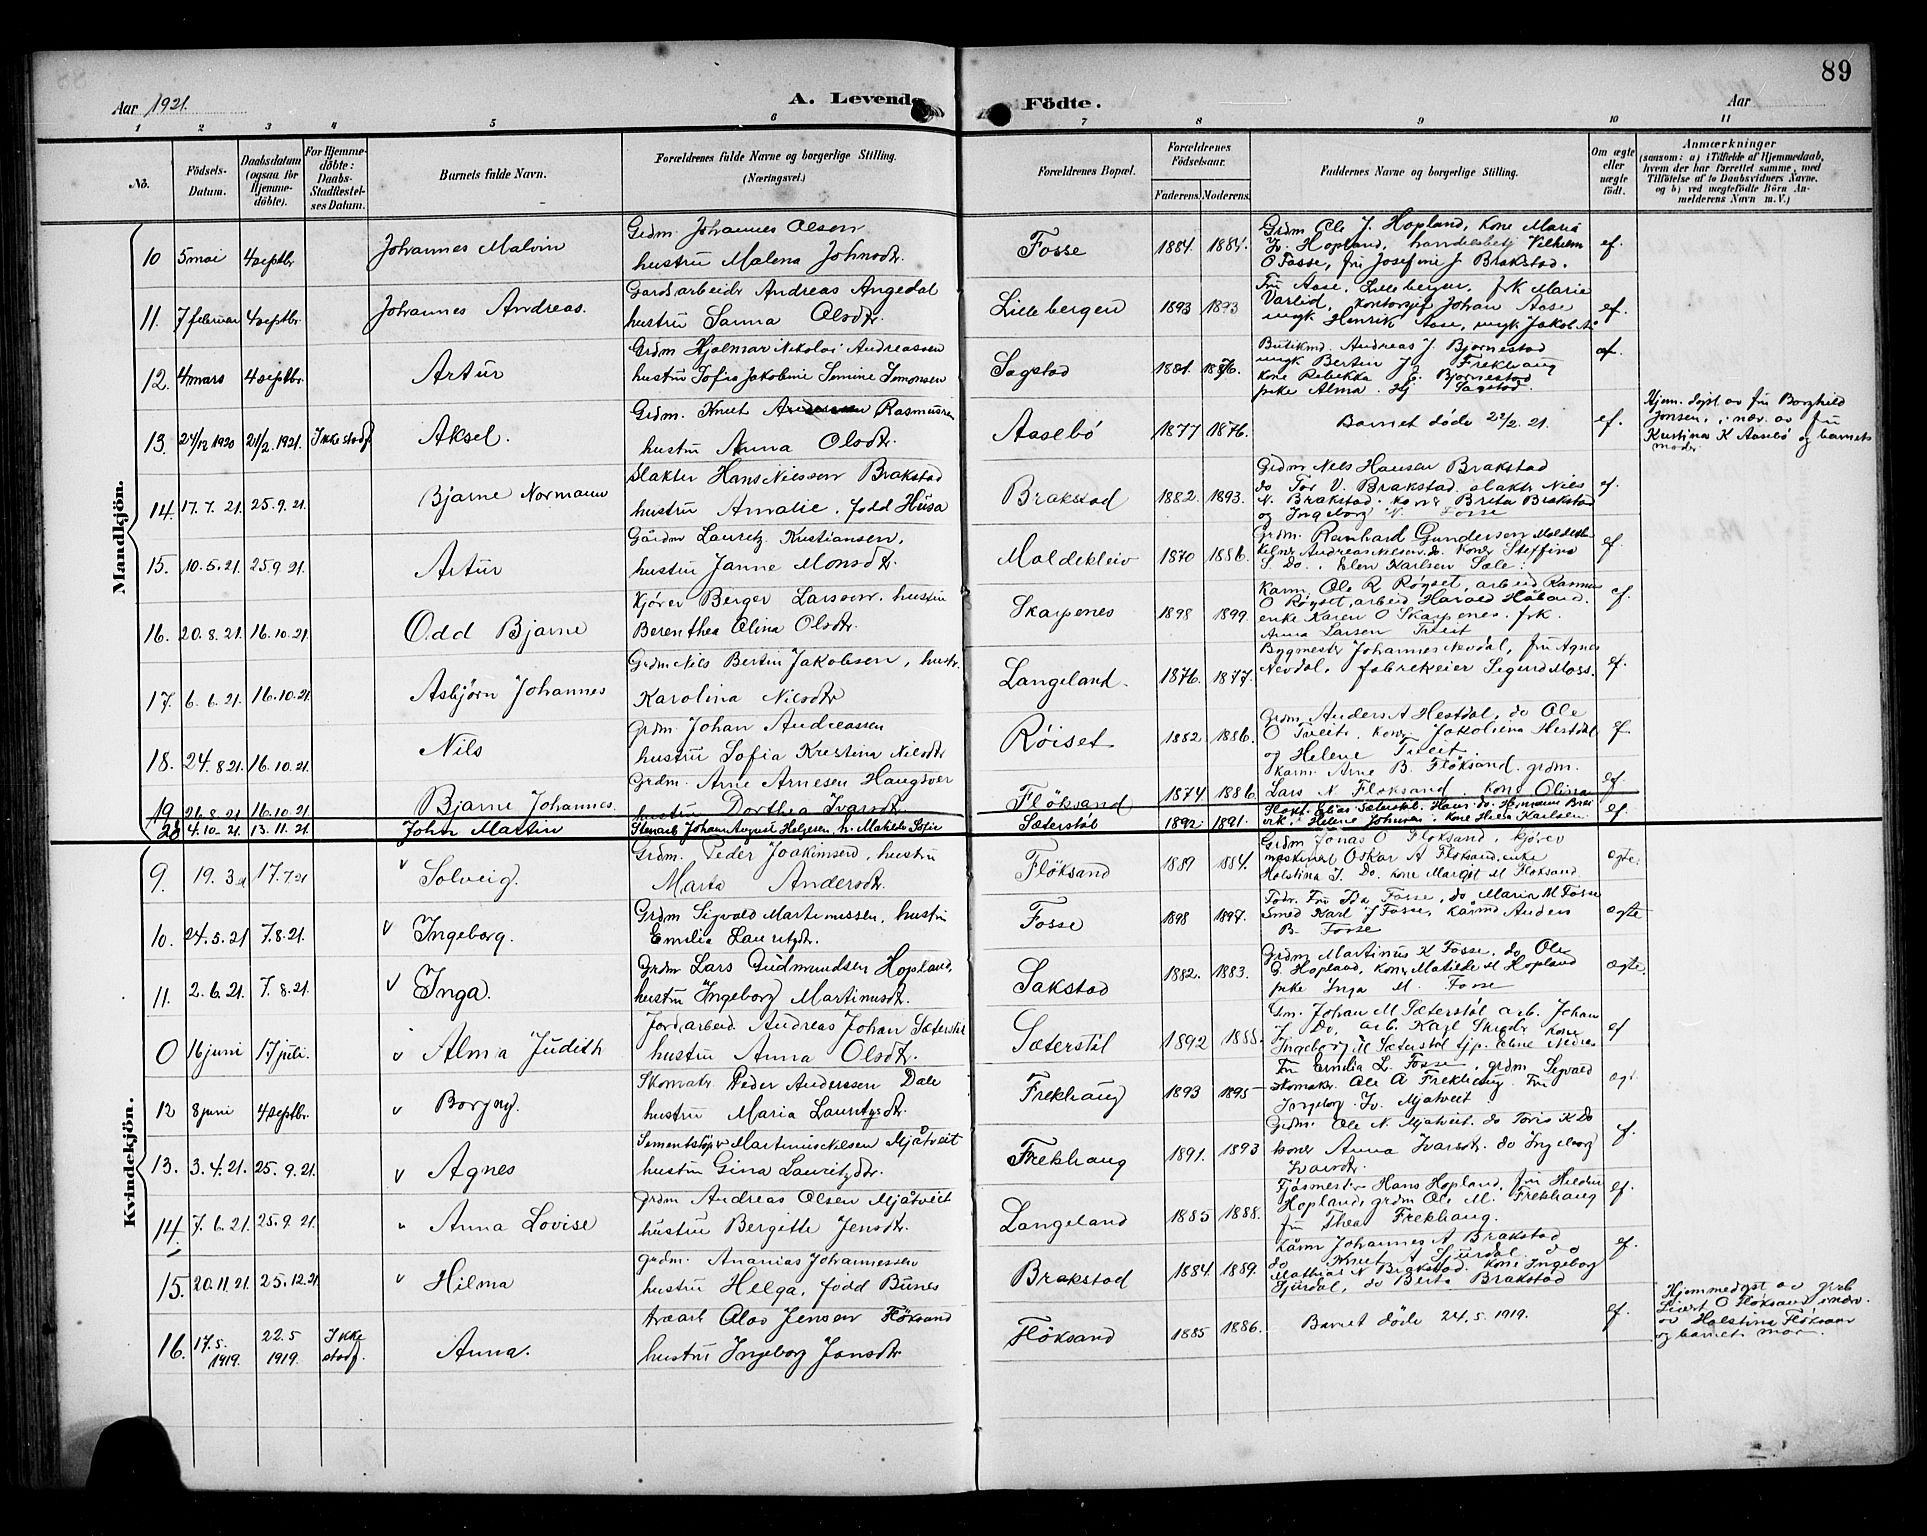 89
Aar 1921.
A. Levende Födte.
Aar
1 2 3 4 5 6 7 8 9 10 11
No.
Födsels-Datum.
Daabsdatum (ogsaa for Hjemme-döbte).
For Hjemme-döbte: Daabs-Stadfæstel-ses Datum.
Barnets fulde Navn.
Forældrenes fulde Navne og borgerlige Stilling. (Næringsvei.)
Forældrenes Bopæl.
Forældrenes Födselsaar.
Faderens. Moderens.
Faddernes Navne og borgerlige Stilling.
Om ægte eller uægte födt.
Anmærkninger
(saasom: a) i Tilfælde af Hjemmedaab, hvem der har forrettet samme, med Tilföielse af to Daabsvidners Navne, og b) ved uægtefödte Börn Anmelderens Navn m. V.)
Mandkjön.
10 5 mai 4 septbr Johannes Malvin
Grdm. Johannes Olsen
hustru Malena Johnsdtr.
Fosse 1884. 1884.
Grdm Ole J. Hopland, Kone Maria
Iv. Hopland, handelsbetj Vilhelm
O Fosse, fru Josefine J Brakstad.
ef.
11. 7 februar 4 septbr. Johannes Andreas.
Gardsarbeider Andreas Angedal
hustru Sanna Olsdtr.
Lillebergen 1893 1893
Fru Aase, Lillebergen, frk Marie
Varlid, kontorgif Johan Aase
ungk Henrik Aase, ungk Jakob Aa
ef.
12. 4 mars 4 septbr. Artur
Grdm Hjalmar Nikolai Andreassen
hustru Sofia Jakobine Simine Simonsen
Sagstad 1881. 1876.
Butikmd. Andreas J. Bjørnestad
ungk Bertin J. Frekhaug
kone Rebekka E. Bjørnestad
pike Alma Hj Sagstad
ef.
13. 24/12 1920 21/2. 1921. Ikke stadf Aksel.
Grdm. Knut Rasmussen
hustru Anna Olsdtr.
Aasebö 1877 1876.
Barnet døde 22/2. 21.
ef.
Hjem. døpt av fru Borghild
Jonsen, i nær. av fru
Kristina K Aasebö og barnets
moder
14. 17. 7. 21. 25. 9. 21. Bjarne Normann
Slakter Hans Nilssen Brakstad
hustru Amalie, född Husa
Brakstad 1882. 1893.
Grdm Nils Hansen Brakstad
do Tor V. Brakstad. slakter Nils
N. Brakstad. kone Brita Brakstad
og Ingeborg N. Fosse
ef.
15. 10. 5. 21. 25. 9 21. Artur
Gårdm Lauritz Kristiansen,
hustru Janne Monsdtr.
Moldekleiv 1870 1886.
Grdm. Reinhard Gundersen Moldekl
Andreas Nilsen do. Kone Steffina
S Do. Elen Karlsen Sæle.
ef.
16. 20. 8. 21. 16. 10. 21. Odd Bjarne
Kjører Berger Larsen. hustru
Berenthea Olina Olsdtr.
Skarpenes 1898 1899.
Karm. Ole R Røyset, arbeid Rasmus
O Røyset, arbeid Harald Håland.
enke Karen O Skarpenes. frk.
Anna Larsen Tveit
ef.
17. 6. 6. 21. 16. 10. 21. Asbjörn Johannes
Grdm Nils Bertin Jakobsen, hustr.
Karolina Nilsdtr
Langeland. 1876. 1877.
Bygmester Johannes Nevdal, fru Agnes
Nevdal, fabrekeier Sigurd Moss.
ef.
18. 24. 8. 21. 16. 10. 21. Nils
Grdm. Johan Andreassen
hustru Sofia Kristina Nilsdtr
Röiset 1882 1886.
Grdm. Anders A Hestdal, do Ole
O Tveit, kone Jakobina Hestdal
og Helene Tveit.
ef
19. 26. 8. 21. 16. 10. 21 Bjarne Johannes.
Grdm. Arne Arnesen Haugsver
hustru Dorthea Ivarsdtr
Flöksand 1874 1886.
Karm. Arne B. Flöksand. grdm.
Lars N Floksand. Kone Olina
ef.
20 4. 10. 21 13. 11. 21 John Martin
Stenarb Johan August Helgesen, h. Matilde Sofie
Sæterstöl 1892 1891.
Helene Johnsen, kone Hilda Karlsen
ef.
Kvindekjön.
9. 19. 3. 21 17. 7 21 v Solveig.
Grdm. Peder Joakimsen, hustru
Marta Andersdtr.
Flöksand 1889 1884.
Grdm Jonas O Flöksand, kjörer
maskinist Oskar A Flöksand, enke
Holstina J. Do, kone Margit M Flöksand
ægte.
10. 24. 5. 21 7. 8. 21. v Ingeborg.
Grdm Sigvald Martinussen, hustru
Emilia Lauritzdtr.
Fosse 1898 1897.
Todr. Fru Ida Fosse, do Maria M Fosse
Smed Karl J Fosse, Karmd Anders
B. Fosse
ægte
11. 2. 6. 21. 7. 8. 21. v Inga.
Grdm Lars Gudmundsen Hopland,
hustru Ingeborg Martinusdt.
Sakstad 1882. 1883.
Grdm Martinus K Fosse, do Ole
G. Hopland, kone Matilde M Hopland
pike Inga M. Fosse
ægte.
0 16 juni 17 juli. v Alma Judith
Jordarbeid. Andreas Johan Sæterstöl
hustru Anna Olsdtr.
Sæterstöl 1892 1888.
Gm. Johan M Sæterstöl arb. Johan
J Do, arb. Karl kone
Ingeborg M Sæterstöl tjp. Oline
ef
12 8 juni 4 septbr. v Borgny.
Skomakr. Peder Anderssen Dale
hustru Maria Lauritzsdtr.
Frekhaug 1893 1895
Fru Emelia L. Fosse, grdm Sigvald
skomaker Ole A Frekhaug. Fru
Ingeborg Iv. Mjatveit.
13. 3. 4. 21. 25. 9. 21. v Agnes
Sementstöper Martinus Nilsen Mjåtveit
hustru Gina Lauritzdtr.
Frekhaug 1891. 1893
Grdm. Ole N. Mjatveit. do Toris K Do
koner Anna Ivarsdtr. do Ingeborg
Ivarsdtr.
ef.
14. 7. 6. 21. 25. 9. 21. Anna Lovise
grdm Andreas Olsen Mjåtveit
hustru Bergitte Jensdtr.
Langeland 1885 1888.
Fjösmester Hans Hopland, fru Helene
Hopland, grdm Ole M. Frekhaug
fru Thea Frekhaug.
ef.
15. 20. 11. 21. 25. 12. 21. v Hilma
grdm. Ananias Johannessen
hustru Helga, född Bunes
Brakstad 1884. 1889.
Karm Johannes A Brakstad
do Knut A Sjurdal. do
Mathias N Brakstad. Kone Ingeborg
Sjurdal, do Berta Brakstad
ef.
16. 17. 5. 1919. 22. 5 1919. Ikke stadf. Anna.
Olav Jensen Flöksand
hustru Ingeborg Jonsdtr
Flöksand 1885 1886.
Barnet döde 24. 5. 1919.
ef.
Hjemmedöpt av grb
Sivert O Flöksand i nærv.
av Holstina Flöksand
og barnets mor.